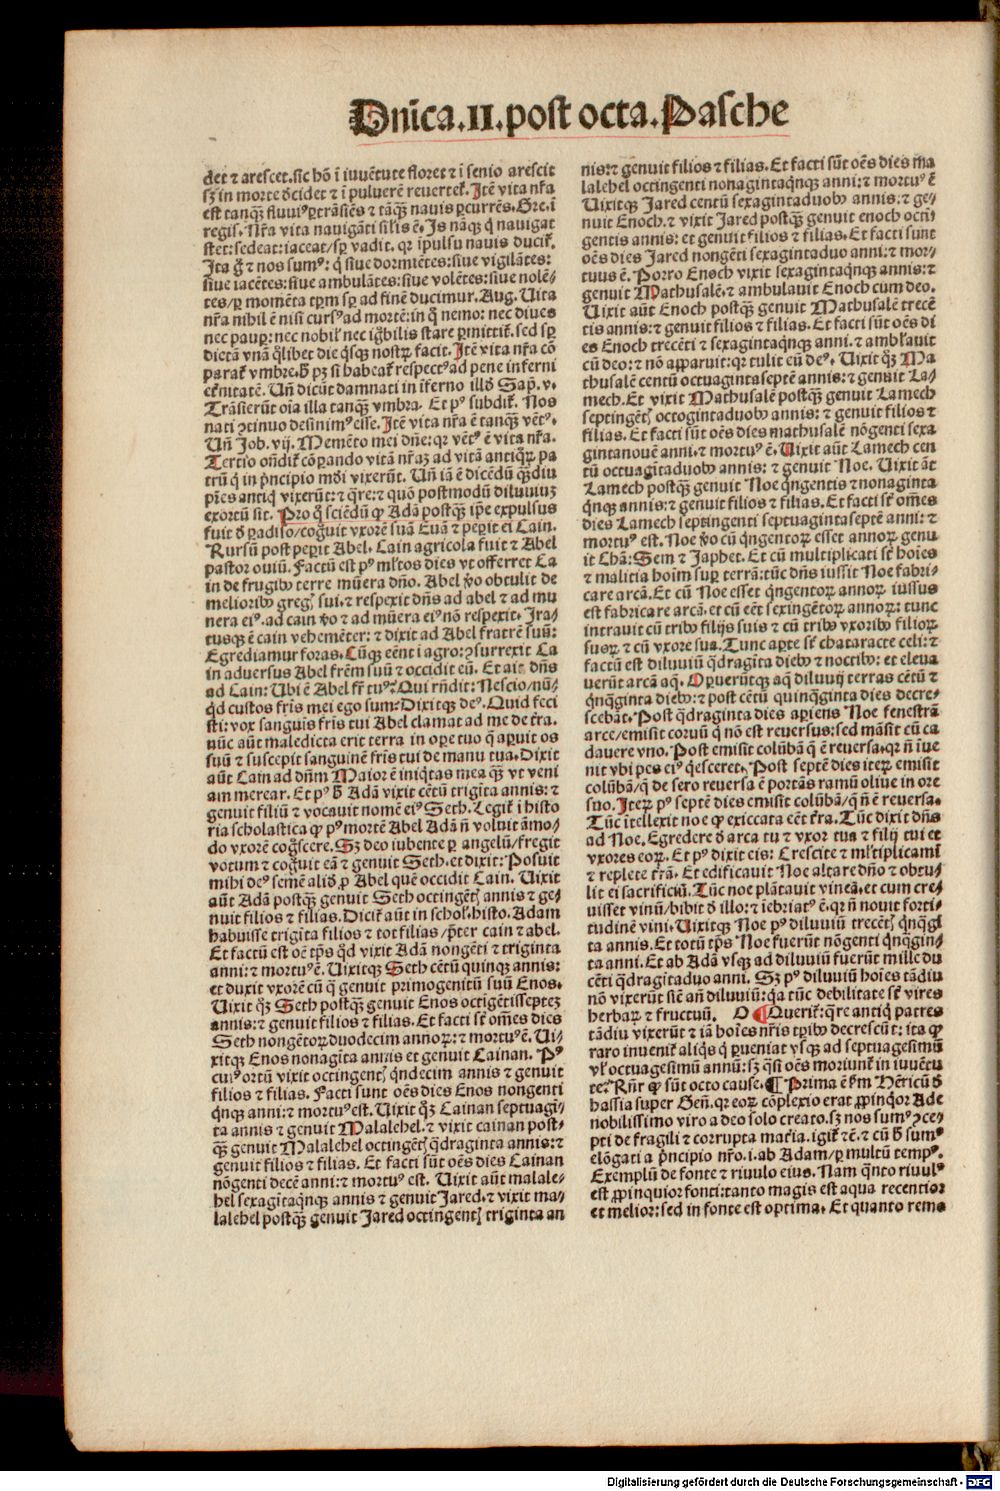 Dnīca.II.post octa.Pasche
det ⁊ arescet.sic hō ī iuuētute floret ⁊ ī senio arescit
sꝫ in morte decidet ⁊ ī puluerē reuertet̉. Itē vita nr̄a
est tanqꝫ fluuiꝰ ꝑtrāsiēs ⁊ tāqꝫ nauis ꝑcurrēs. Gre. ī
regis. Nr̄a vita nauigāti sil̄is ē. Is nāqꝫ q̄ nauigat
stet:sedeat:iaceat/sꝑ vadit. qꝛ īpulsu nauis ducit̉.
Ita ḡ ⁊ nos sumꝰ: q̄ siue dormiētes:siue vigilātes:
siue iacētes:siue ambulātes:siue volētes:siue nolē-
tes/ꝑ momēta tꝑm sꝑ ad finē ducimur. Aug. Uita
nr̄a nihil ē nisi cursꝰ ad mortē:in q̄ nemo: nec diues
nec pauꝑ: nec nobil̉ nec ignobilis stare ꝑmittit̉. sed sꝑ
dietā vnā q̄libet die q̄sqꝫ nostꝝ facit. Itē vita nr̄a cō
parat̉ vmbre.ꝺ pꝫ si habeat̉ respectꝰ ad pene inferni
et̉nitatē. Un̄ dicūt damnati in īferno illd̄ Sap. v.
Trāsierūt oīa illa tanqꝫ vmbra. Et pꝰ subdit̉. Nos
nati ꝯtinuo desinimꝰ esse. Itē vita nr̄a ē tanqꝫ vētꝰ.
Un̄ Job. vij. Memēto mei dn̄e: qꝛ vētꝰ ē vita nr̄a.
Tertio ondit̉ cōꝑando vitā nr̄aꝫ ad vitā antiqꝝ pa
trū q̄ in p̄ncipio mūdi vixerūt. Un̄ iā ē dicēdū qꝫdiu
pr̄es antiq̄ vixerūt: ⁊ q̄re: ⁊ quō postmodū diluuiuꝫ
exortū sit. Pro q̄ sciēdū ꝙ Adā postqꝫ ip̄e expulsus
fuit ꝺ ꝑadiso/cogͦuit vxorē suā Euā ⁊ peꝑit ei Cain.
Rursū post peꝑit Abel. Cain agricola fuit ⁊ Abel
pastor ouiū. Factū est pꝰ ml̄tos dies vt offerret Ca
in de frugibꝰ terre mūera dn̄o. Abel v̄o obtulit de
melioribꝰ gregꝭ sui.⁊ respexit dn̄s ad abel ⁊ ad mu
nera eiꝰ.ad cain v̄o ⁊ ad mūera eiꝰ nō respexit. Ira-
tusqꝫ ē cain vehemēter: ⁊ dixit ad Abel fratrē suū:
Egrediamur foras. Cūqꝫ eēnt ī agro:ꝯsurrexit Ca
in aduersus Abel fr̄em suū ⁊ occidit eū. Et ait dn̄s
ad Cain: Ubi ē Abel fr̄ tuꝰ? Qui rn̄dit: Nescio/nū-
qd̄ custos fr̄is mei ego sum? Dixitqꝫ deꝰ. Quid feci
sti: vox sanguīs fr̄is tui Abel clamat ad me de t̄ra.
nūc aūt maledicta erit terra in oꝑe tuo q̄ aꝑuit os
suū ⁊ suscepit sanguinē fr̄is tui de manu tua. Dixit
aūt Cain ad dn̄m Maior ē iniq̄tas mea qꝫ vt veni
am merear. Et pꝰ ꝺ Adā vixit cētū trigīta annis: ⁊
genuit filiū ⁊ vocauit nomē eiꝰ Seth. Legit̉ ī histo
ria scholastica ꝙ pꝰ mortē Abel Adā n̄ voluit āmo-
do vxorē cogͦscere. Sꝫ deo iubente ꝑ angelū/fregit
votum ⁊ cogͦuit eā ⁊ genuit Seth. et dixit: Posuit
mihi deꝰ semē aliud ꝓ Abel quē occidit Cain. Uixit
aūt Adā postqꝫ genuit Seth octingētꝭ annis ⁊ ge-
nuit filios ⁊ filias. Dicit̉ aūt in schol.histo. Adam
habuisse trigīta filios ⁊ tot filias/p̄ter cain ⁊ abel.
Et factū est oē tp̄s qd̄ vixit Adā nongēti ⁊ triginta
anni: ⁊ mortuꝰ ē. Uixitqꝫ Seth cētū quinqꝫ annis:
et duxit vxorē cū q̄ genuit primogenitū suū Enos.
Uixit qꝫ Seth postqꝫ genuit Enos octigētisseptez
annis: ⁊ genuit filios ⁊ filias. Et facti st̄ om̄es dies
Seth nongētoꝝ duodecim annoꝝ: ⁊ mortuꝰ ē. Ui-
xitqꝫ Enos nonagīta annis et genuit Cainan. Pꝰ
cuiꝰ ortū vixit octingentꝭ q̄ndecim annis ⁊ genuit
filios ⁊ filias. Facti sunt oēs dies Enos nongenti
q̄nqꝫ anni: ⁊ mortuꝰ est. Uixit qꝫ Cainan septuagī-
ta annis ⁊ genuit Malalehel.⁊ vixit cainan post-
qꝫ genuit Malalehel octingētꝭ q̄draginta annis: ⁊
genuit filios ⁊ filias. Et facti sūt oēs dies Cainan
nōgenti decē anni: ⁊ mortuꝰ est. Uixit aūt malale-
hel sexagītaq̄nqꝫ annis ⁊ genuit Jared.⁊ vixit ma-
lalehel postqꝫ genuit Jared octingentꝭ triginta an
nis: ⁊ genuit filios ⁊ filias. Et facti sūt oēs dies ma
lalehel octingenti nonagintaq̄nqꝫ anni: ⁊ mortuꝰ ē
Uixitqꝫ Jared centū sexagintaduobꝰ annis: ⁊ ge-
nuit Enoch. ⁊ vixit Jared postqꝫ genuit enoch octī
gentis annis: et genuit filios ⁊ filias. Et facti sunt
oēs dies Jared nongēti sexagintaduo anni: ⁊ mor-
tuus ē. Porro Enoch vixit sexagintaq̄nqꝫ annis: ⁊
genuit Mathusalē.⁊ ambulauit Enoch cum deo.
Uixit aūt Enoch postqꝫ genuit Mathusalē trecē
tis annis: ⁊ genuit filios ⁊ filias. Et facti sūt oēs di
es Enoch trecēti ⁊ sexagintaq̄nqꝫ anni. ⁊ ambl̄auit
cū deo: ⁊ nō apparuit: qꝛ tulit eū deꝰ. Uixit qꝫ Ma
thusalē centū octuagintaseptē annis: ⁊ genuit La-
mech. Et vixit Mathusalē postqꝫ genuit Lamech
septingētꝭ octogintaduobꝰ annis: ⁊ genuit filios ⁊
filias. Et facti sūt oēs dies mathusalē nōgenti sexa
gintanouē anni.⁊ mortuꝰ ē. Uixit aūt Lamech cen
tū octuagītaduobꝰ annis: ⁊ genuit Noe. Uixit āt
Lamech postqꝫ genuit Noe q̄ngentis ⁊ nonaginta
q̄nqꝫ annis: ⁊ genuit filios ⁊ filias. Et facti st̄ om̄es
dies Lamech septingenti septuagintaseptē anni: ⁊
mortuꝰ est. Noe v̄o cū q̄ngentoꝝ esset annoꝝ genu
it Chā: Sem ⁊ Japhet. Et cū multiplicati st̄ hoīes
⁊ malitia hoīm suꝑ terrā: tūc dn̄s iussit Noe fabri-
care arcā. Et cū Noe esset q̄ngentoꝝ annoꝝ iussus
est fabricare arcā. et cū eēt sexingētoꝝ annoꝝ: tunc
intrauit cū tribꝰ filijs suis ⁊ cū tribꝰ vxoribꝰ filioꝝ
suoꝝ ⁊ cū vxore sua. Tunc aꝑte st̄ chataracte celi: ⁊
factū est diluuiū q̄dragīta diebꝰ ⁊ noctibꝰ: et eleua
uerūt arcā aq̄. Oꝑuerūtqꝫ aq̄ diluuij terras cētū ⁊
q̄nq̄ginta diebꝰ: ⁊ post cētū quinq̄ginta dies decre-
scebāt. Post q̄draginta dies aꝑiens Noe fenestrā
arce/emisit coruū q̄ nō est reuersus: sed māsit cū ca
dauere vno. Post emisit colūbā q̄ ē reuersa. qꝛ n̄ īue
nit vbi pes eiꝰ q̄esceret. Post septē dies iteꝝ emisit
colūbā/q̄ de sero reuersa ē portās ramū oliue in ore
suo. Iteꝝ pꝰ septē dies emisit colūbā/q̄ n̄ ē reuersa.
Tūc ītellexit noe ꝙ exiccata eēt t̄ra. Tūc dixit dn̄s
ad Noe. Egredere ꝺ arca tu ⁊ vxor tua ⁊ filij tui et
vxores eoꝝ. Et pꝰ dixit eis: Crescite ⁊ ml̄tiplicamī
⁊ replete t̄rā. Et edificauit Noe altare dn̄o ⁊ obtu-
lit ei sacrificiū. Tūc noe plātauit vineā. et cum cre-
uisset vinū/bibit ꝺ illo: ⁊ īebriatꝰ ē. qꝛ n̄ nouit forti-
tudinē vini. Uixitqꝫ Noe pꝰ diluuiū trecētꝭ q̄nq̄gī
ta annis. Et totū tp̄s Noe fuerūt nōgenti q̄nq̄gin-
ta anni. Et ab Adā vsqꝫ ad diluuiū fuerūt mille du
cēti q̄dragītaduo anni. Sꝫ pꝰ diluuiū hoīes tādiu
nō vixerūt sicē an̄ diluuiū: q̄a tūc debilitate st̄ vires
herbaꝝ ⁊ fructuū. O ¶ Querit̉: q̄re antiq̄ patres
tādiu vixerūt ⁊ iā hoīes nr̄is tꝑibꝰ decrescūt: ita ꝙ
raro inuenit̉ aliq̄s q̄ ꝑueniat vsqꝫ ad septuagesimū
vl̄ octuagesimū annū: sꝫ q̄si oēs moriunt̉ in iuuētu
te? Rn̄r ꝙ sūt octo cause. ¶ Prima ē ẜm Hēricū ꝺ
hassia super Gen̄. qꝛ eoꝝ cōplexio erat ꝓpinq̄or Ade
nobilissimo viro a deo solo creato. sꝫ nos sumꝰ ꝯce-
pti de fragili ⁊ corrupta mat̄ia. igit̉ ⁊c̄. ⁊ cū ꝺ sumꝰ
elōgati a p̄ncipio nr̄o. i. ab Adam/ꝑ multū tempꝰ.
Exemplū de fonte ⁊ riuulo eius. Nam q̄nto riuulꝰ
est ꝓpinquior fonti: tanto magis est aqua recentior
et melior: sed in fonte est optima. Et quanto remo
Digitalisierung gefördert durch die Deutsche Forschungsgemeinschaft - DFG